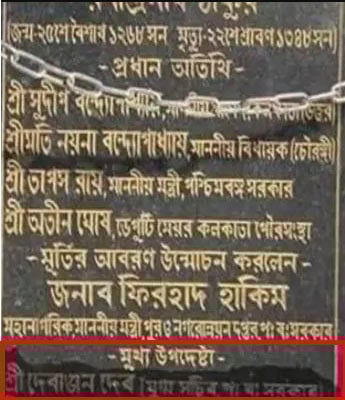 ঠাকুর
(জন্ম-২৫শে বৈশাখ ১২৬৮ সন মৃত্যু-২২শে শ্রাবণ ১৩৪৮ সন)
-প্রধান অতিথি-
শ্রী সুদীপ বন্দ্যোপাধ্যায়,
শ্রীমতি নয়না বন্দ্যোপাধ্যায়, মাননীয় বিধায়ক (চৌরঙ্গী)
শ্রী তাপস রায়, মাননীয় মন্ত্রী, পশ্চিমবঙ্গ সরকার
শ্রী অতীন ঘোষ, ডেপুটি মেয়র কলকাতা পৌরসংস্থা
-মূর্তির আবরণ উন্মোচন করলেন-
জনাব ফিরহাদ হাকিম
মহানাগরিক মাননীয় মন্ত্রী পুর ও নগরোন্নয়ন দপ্তর প: ব: সরকার
-মুখ্য উপদেষ্টা-
শ্রী দেবাঞ্জন দেব (মুখ্য সচিব প: ব: সরকার)